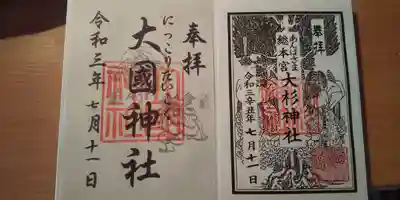 奉拝
あんばさま
総本宮
大杉神社
令和三辛丑年七月十一日
奉拝
にっこりだいこく
大國神社
令和三年七月十一日